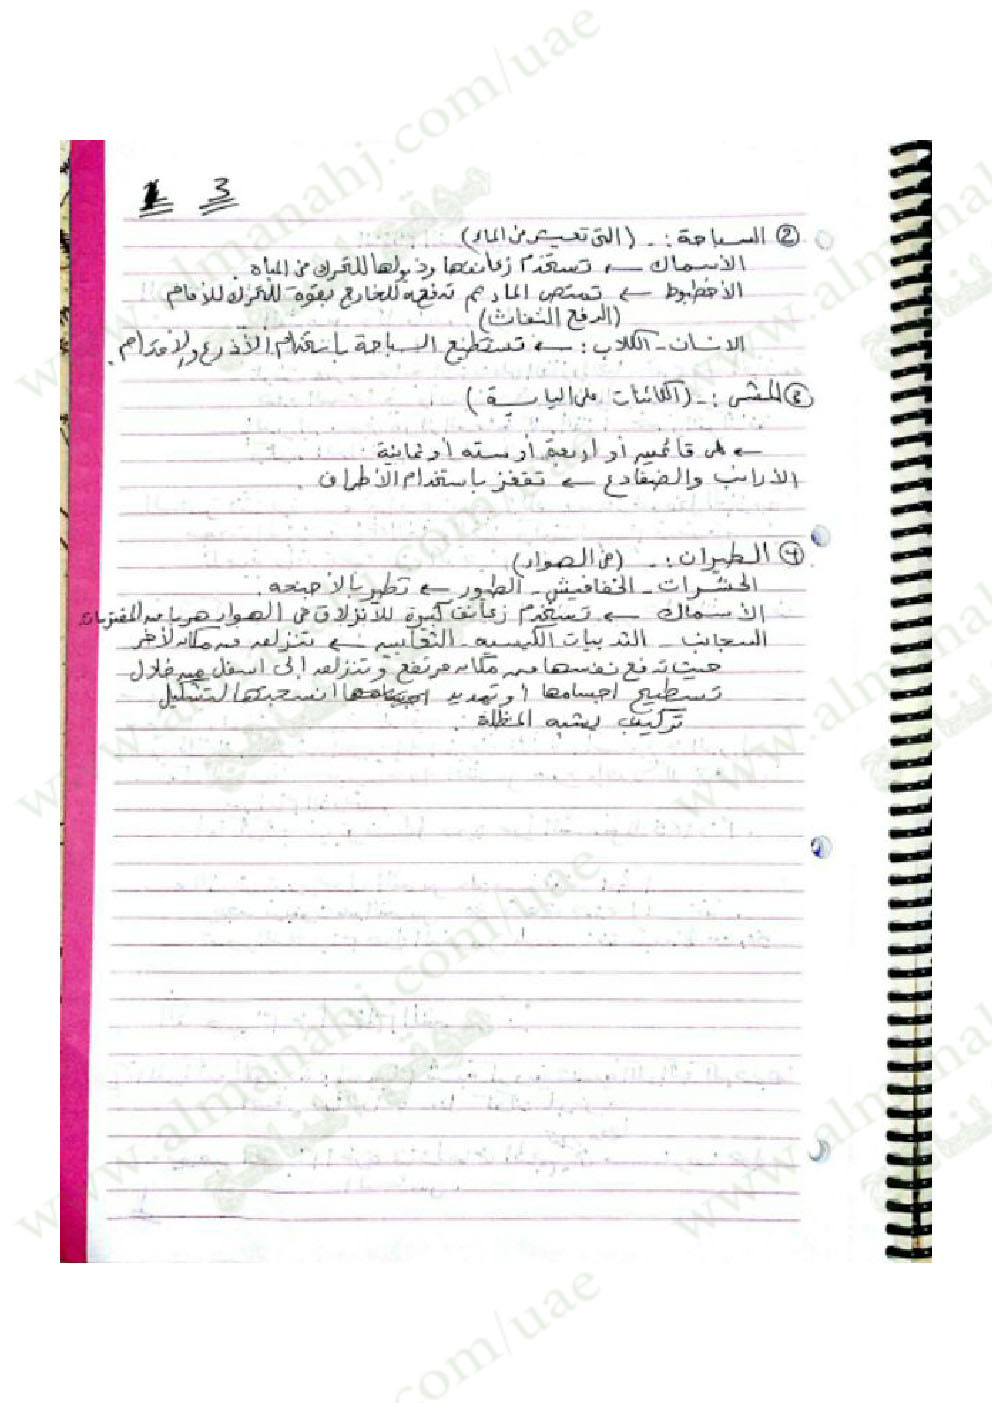 1 3
② السباحة :- (التي تعيش في الماء)
الأسماك ← تستخدم زعانفها وذيولها للتحرك في المياه .
الأخطبوط ← تمتص الماء ثم تدفعه للخارج بقوة للتحرك للأمام
(الدفع النفاث)
الانسان - الكلاب : ← تستطيع السباحة باستخدام الأذرع والأقدام .
③ المشي :- (الكائنات على اليابسة)
← على قائمين أو أربعة أو سته أو ثمانية
الأرانب والضفادع ← تقفز باستخدام الأطراف .
④ الطيران :- (في الهواء)
الحشرات - الخفافيش - الطيور ← تطير بالأجنحه .
الأسماك ← تستخدم زعانف كبيرة للانزلاق في الهواء هربا من المفترسات
السناجب - الثدييات الكيسيه - الثعابين ← تنزلق من مكان لآخر
حيث تدفع نفسها من مكان مرتفع وتنزلق إلى اسفل من خلال
تسطيح اجسامها أو تمديد انسجتها لتشكيل
تركيب يشبه المظلة .
almanahj.com/uae
www.almanahj.com/uae
موقع المناهج